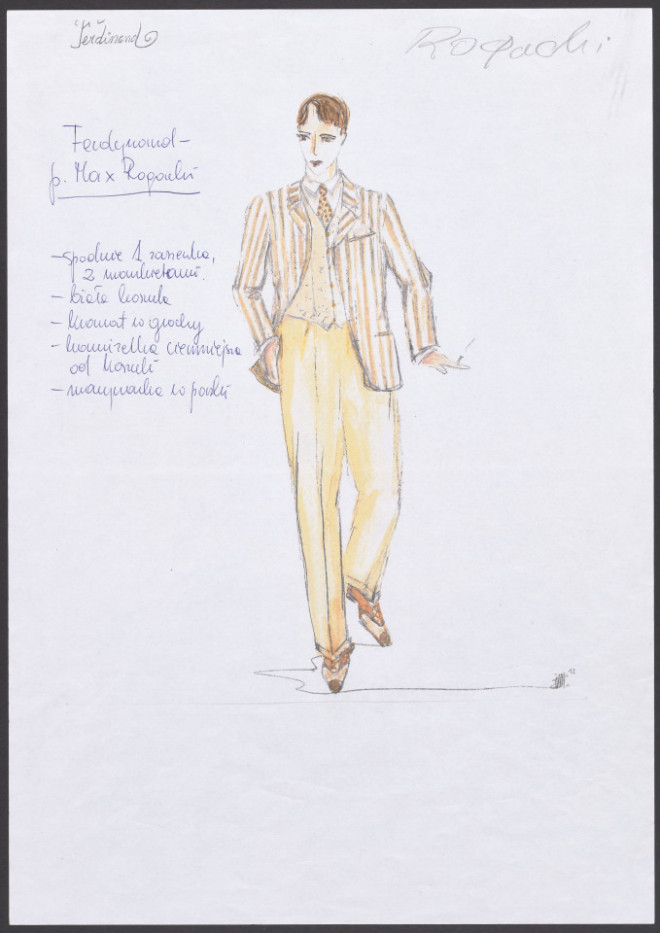 Ferdinand
Rogacki
Ferdynand –
p. Max Rogacki
– spodnie 1 zaszewka,
z mankietami.
– biała koszula
– krawat w grochy
– kamizelka ciemniejsza
od koszuli
– marynarka w paski